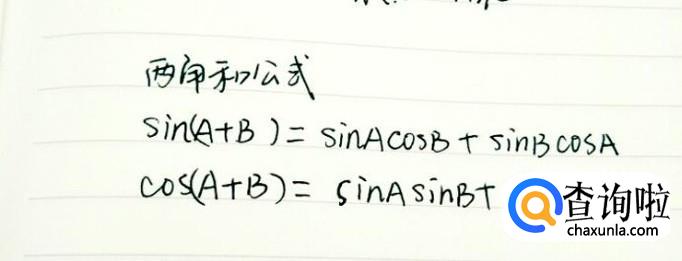 两角和公式
sin(A+B)=sinAcosB+sinBcosA
cos(A+B)=sinAsinB+
查询啦
chaxunla.com